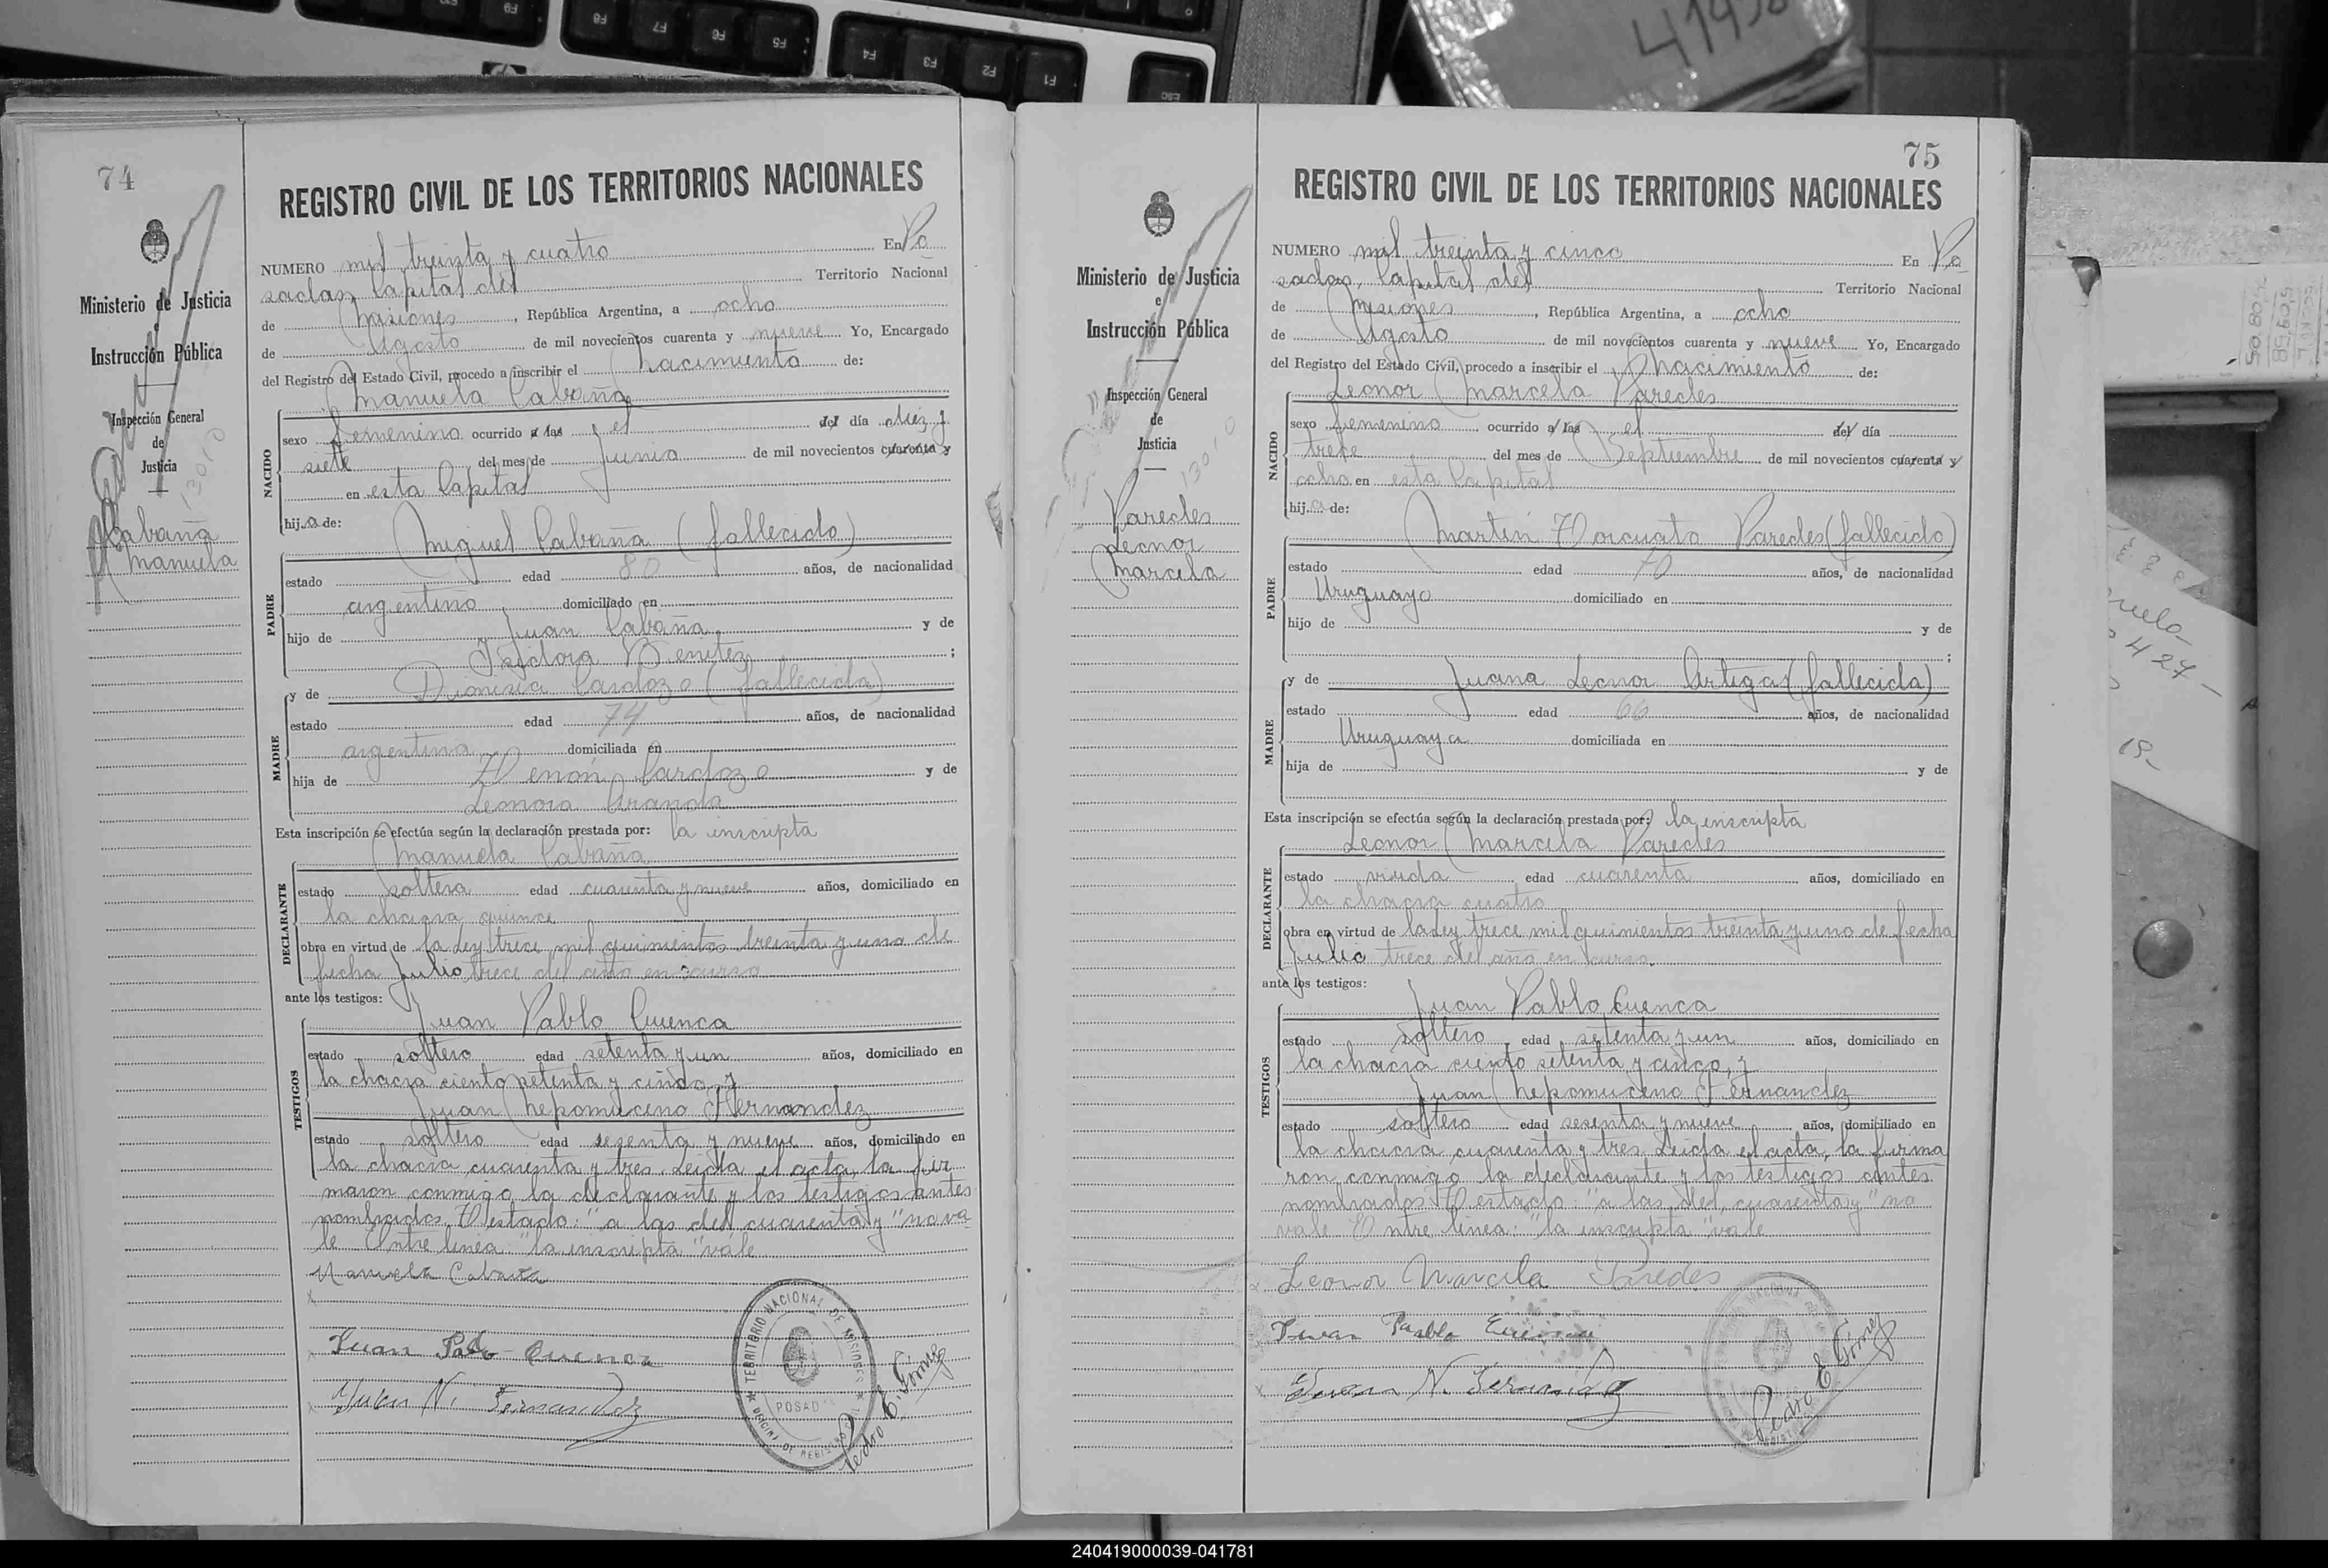 74
REGISTRO CIVIL DE LOS TERRITORIOS NACIONALES
NUMERO mil treinta y cuatro En Po
sadas, Capital del Territorio Nacional
de Misiones, República Argentina, a ocho
de Agosto de mil novecientos cuarenta y nueve Yo, Encargado
del Registro del Estado Civil, procedo a inscribir el Nacimiento de:
Manuela Cabaña
NACIDO
sexo femenino ocurrido a las el del día diez y
siete del mes de Junio de mil novecientos cuarenta y
en esta Capital
hija de:
Miguel Cabaña (fallecido)
PADRE
estado edad 80 años, de nacionalidad
argentino domiciliado en
hijo de Juan Cabaña y de
Isidora Benitez ;
y de Dionisia Cardozo (fallecida)
MADRE
estado edad 74 años, de nacionalidad
argentina domiciliada en
hija de Zenón Cardozo y de
Lenora Aranda
Esta inscripción se efectúa según la declaración prestada por: la inscripta
Manuela Cabaña
DECLARANTE
estado soltera edad cuarenta y nueve años, domiciliado en
la chacra quince
obra en virtud de la Ley trece mil quinientos treinta y uno de
fecha Julio trece del año en curso
ante los testigos:
Juan Pablo Cuenca
TESTIGOS
estado soltero edad setenta y un años, domiciliado en
la chacra ciento setenta y cinco, y
Juan Nepomuceno Fernandez
estado soltero edad sesenta y nueve años, domiciliado en
la chacra cuarenta y tres. Leida el acta, la fir
maron conmigo la declarante y los testigos antes
nombrados. Testado: "a las del cuarenta y" no va
le Entre linea: "la inscripta" vale
Manuela Cabaña
Juan Pablo Cuenca
Juan N. Fernandez
TERRITORIO NACIONAL DE MISIONES
POSADAS
Pedro E. Gomez
Ministerio de Justicia
e
Instrucción Pública
Inspección General
de
Justicia
Cabaña
Manuela
75
REGISTRO CIVIL DE LOS TERRITORIOS NACIONALES
NUMERO mil treinta y cinco En Po
sadas, Capital del Territorio Nacional
de Misiones, República Argentina, a ocho
de Agosto de mil novecientos cuarenta y nueve Yo, Encargado
del Registro del Estado Civil, procedo a inscribir el Nacimiento de:
Leonor Marcela Paredes
NACIDO
sexo femenino ocurrido a las el del día
trece del mes de Septiembre de mil novecientos cuarenta y
ocho en esta Capital
hija de:
Martin Torcuato Paredes (fallecido)
PADRE
estado edad 70 años, de nacionalidad
Uruguayo domiciliado en
hijo de y de
;
y de Juana Leonor Artigas (fallecida)
MADRE
estado edad 66 años, de nacionalidad
Uruguaya domiciliada en
hija de y de
Esta inscripción se efectúa según la declaración prestada por: la inscripta
Leonor Marcela Paredes
DECLARANTE
estado viuda edad cuarenta años, domiciliado en
la chacra cuatro
obra en virtud de la Ley trece mil quinientos treinta y uno de fecha
Julio trece del año en curso
ante los testigos:
Juan Pablo Cuenca
TESTIGOS
estado soltero edad setenta y un años, domiciliado en
la chacra ciento setenta y cinco, y
Juan Nepomuceno Fernandez
estado soltero edad sesenta y nueve años, domiciliado en
la chacra cuarenta y tres. Leida el acta, la firma
ron conmigo la declarante y los testigos antes
nombrados. Testado: "a las, del, cuarenta y" no
vale Entre linea: "la inscripta" vale
Leonor Marcela Paredes
Juan Pablo Cuenca
Juan N. Fernandez
Pedro E. Gomez
Ministerio de Justicia
e
Instrucción Pública
Inspección General
de
Justicia
Paredes
Leonor
Marcela
F9
F8
F7
F6
F5
F4
F3
F2
F1
ESC
240419000039-041781